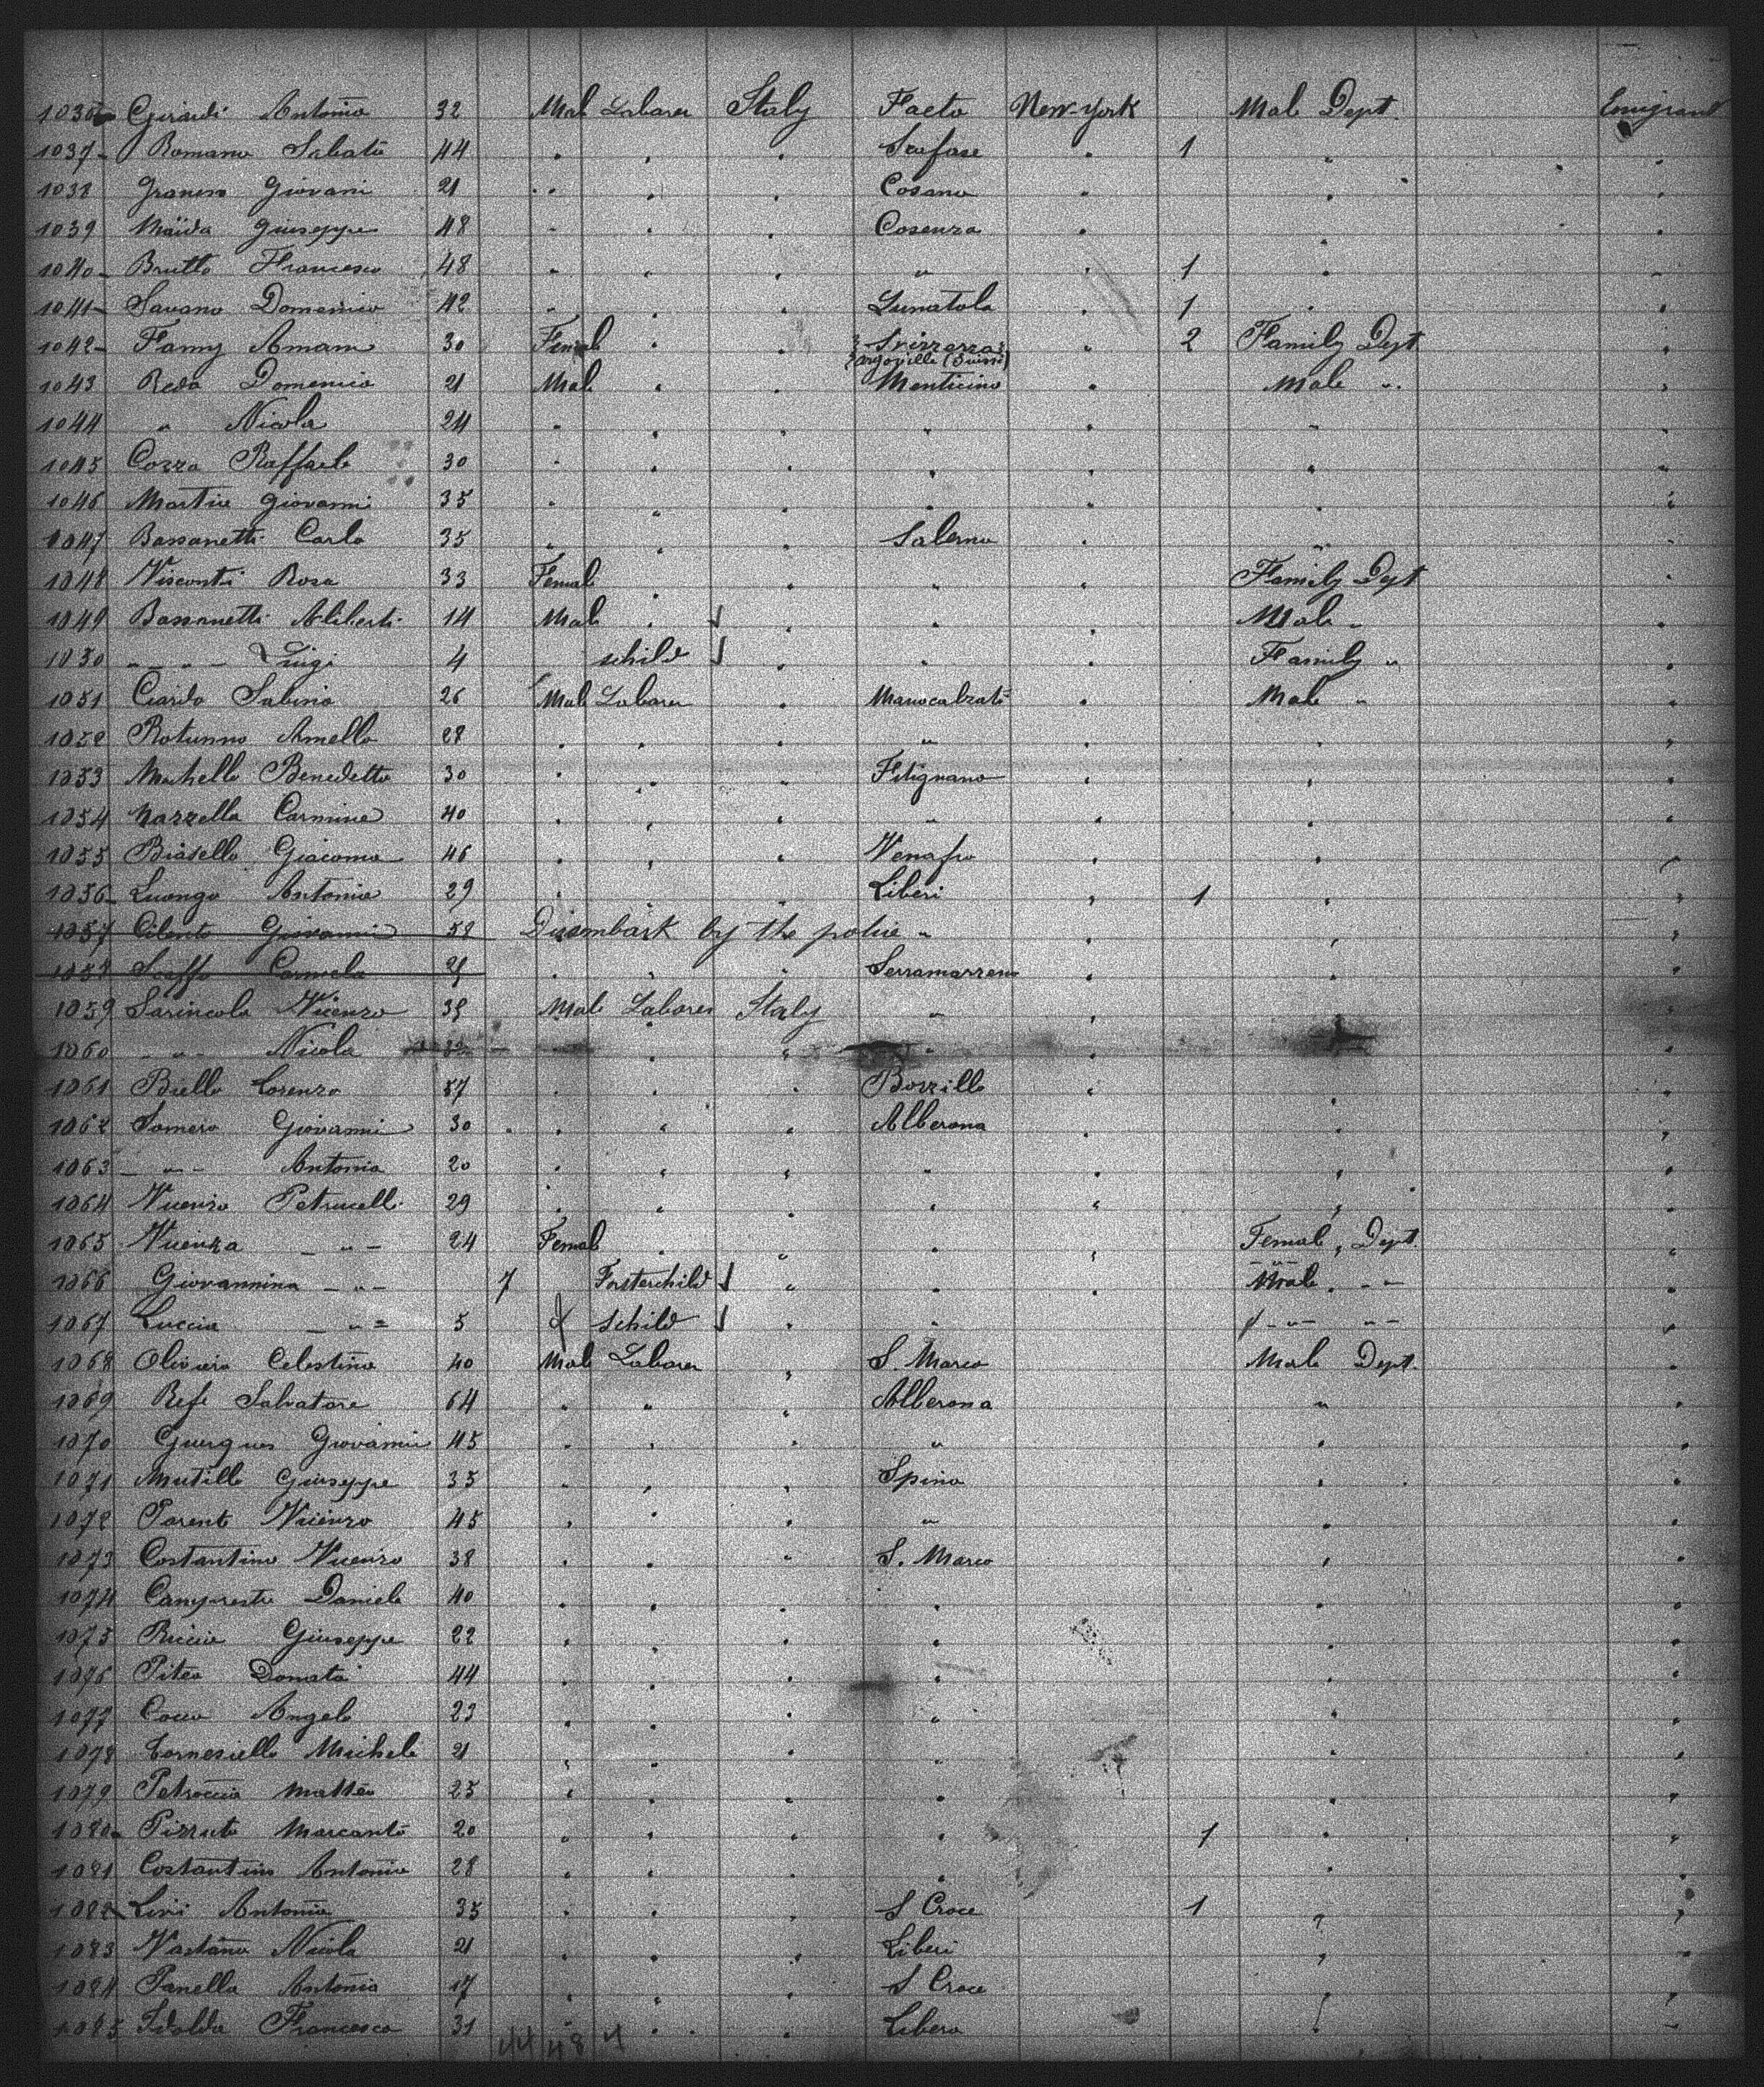 1036 Girardi Antonio 32 Mal Labarer Italy Faeto New-York Male Dept. Emigrant
1037 - Romano Sabato 44 " " " Scafase " 1 " "
1038 Giovani 21 " " " Cosano " " "
1039 Maïda Giuseppe 48 " " " Cosenza " " "
1040 - Brutto Francesco 48 " " " " " 1 " "
1041 - Savano Domenico 42 " " " " 1 " "
1042 - Fanny Amam 30 Femal " " Svizzera (Suisse) " 2 Family Dept. "
1043 Reda Domenico 21 Mal " " Monticino " Male " "
1044 " Nicola 24 " " " " " " "
1045 Cozza Raffaele 30 " " " " " " "
1046 Martire Giovanni 35 " " " " " " "
1047 Bassanetti Carlo 35 " " " Salerno " " "
1048 Visconti Rosa 33 Femal " " " " Family Dept "
1049 Bassanetti Aliberti 14 Mal " " " " Male " "
1050 " " " Luigi 4 schild " " " Family " "
1051 Ciardo Sabino 26 Mal Labarer " Manocalzati " Male " "
1052 Rotunno Amello 28 " " " " " " "
1053 Machello Benedetto 30 " " " Filignano " " "
1054 Nazzella Carmine 40 " " " " " " "
1055 Biasello Giacomo 46 " " " Venafro " " "
1056 - Luongo Antonio 29 " " " Liberi " 1 " "
1057 Cilento Giovanni 58 Disembark by the police " " " "
1058 Scaffo Carmela 21 " " " Serramarzena " " "
1059 Sarincola Vicenzo 39 Male Labarer Italy " " " "
1060 " " " Nicola 32 " " " " "
1061 Biello Lorenzo 57 " " " Bozzillo " " "
1062 Somero Giovanni 30 " " " Alberona " " "
1063 " " " Antonio 20 " " " " " " "
1064 Vicenzo Petrucelli 29 " " " " " " "
1065 Vicenza " 24 Femal " " " " Femal " Dept. "
1066 Giovannina " 7 Fosterchild " " " Male " " "
1067 Luccia " 5 schild " " " " "
1068 Oliviero Celestino 40 Mal Labarer " S. Marco Male Dept. "
1069 Refe Salvatore 64 " " " Alberona " "
1070 Giovanni 45 " " " " " "
1071 Mutillo Giuseppe 35 " " " Spino " "
1072 Parente Vicenzo 45 " " " " " "
1073 Costantino Vicenzo 38 " " " S. Marco " "
1074 Campreste Daniele 40 " " " " " "
1075 Riccio Giuseppe 22 " " " " " "
1076 Piteo Donato 44 " " " " " "
1077 Cocco Angelo 23 " " " " " "
1078 Tornesiello Michele 21 " " " " " "
1079 Petroccia Matteo 25 " " " " " "
1080 - Pizzuto Marcanto 20 " " " " 1 " "
1081 Costantino Antonio 28 " " " " " "
1082 - Livi Antonio 35 " " " S Croce 1 " "
1083 Vastano Nicola 21 " " " Liberi " "
1084 Panella Antonio 17 " " " S Croce " "
1085 Francesco 31 " " " Libero " "
44 48 4